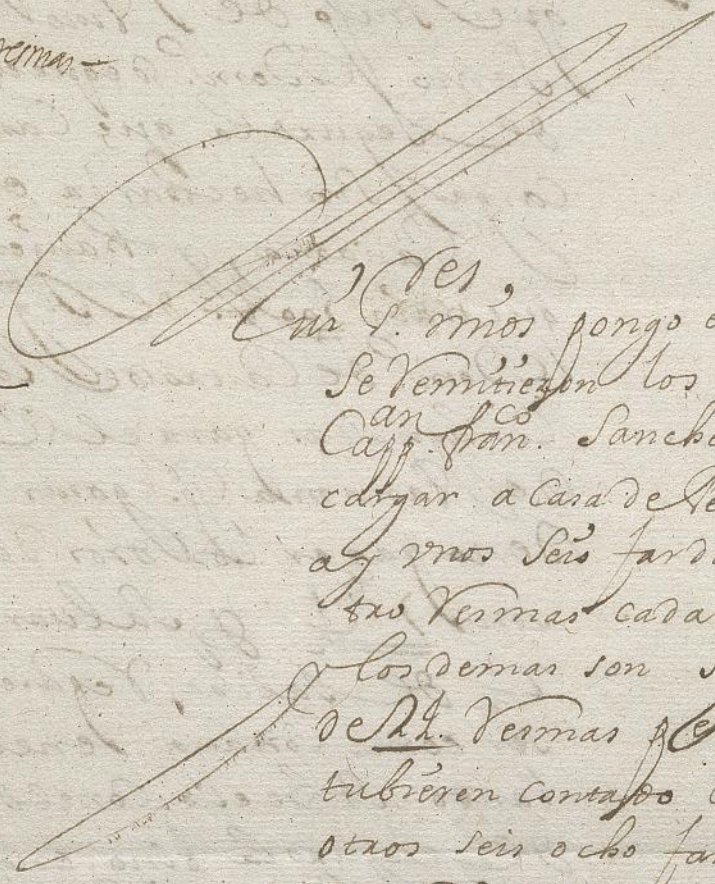 resmas
des
Cui P. mros pongo e
Se Remitieron los
an co
Capp. fran. Sanche
cargar a Casa de Pe
ay vnos seis fard
tro Resmas cada
y los demas son s
de 22. Resmas p
tubieren contado
otros seis ocho far